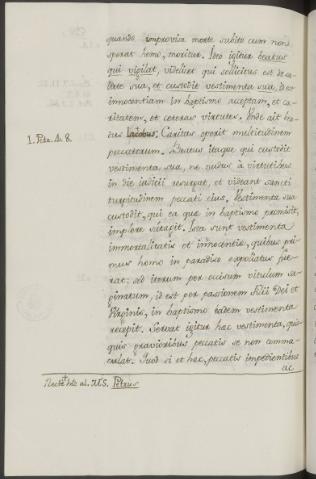 quando improvisa morte subito cum non
sperat homo, moritur. Isto igitur beatus
qui vigilat, videlicet qui sollicitus est de sa-
lute sua, et custodit vestimenta sua, id est
innocentiam in baptismo acceptam, et ca-
ritatem, et ceteras virtutes. Unde ait be-
I. Petr. 4. 8.
atus Iacobus: Caritas operit multitudinem
peccatorum. Beatus itaque qui custodit
vestimenta sua, ne nudus à virtutibus
in die iudicii resurgat, et videant sancti
turpitudinem peccati eius. Vestimenta sua
custodit, qui ea quae in baptismo promisit,
implere satagit. Ista sunt vestimenta
immortalitatis et innocentiae, quibus pri-
mus homo in paradiso expoliatus fue-
rat: sed iterum per occisum vitulum sa-
ginatum, id est per passionem Filii Dei et
Virginis, in baptismo eadem vestimenta
recepit. Servat igitur haec vestimenta, quis-
quis gravioribus peccatis se non comma-
culat. Quod si et haec, peccatis impedientibus
ac
Recte hic al. MS. Petrus